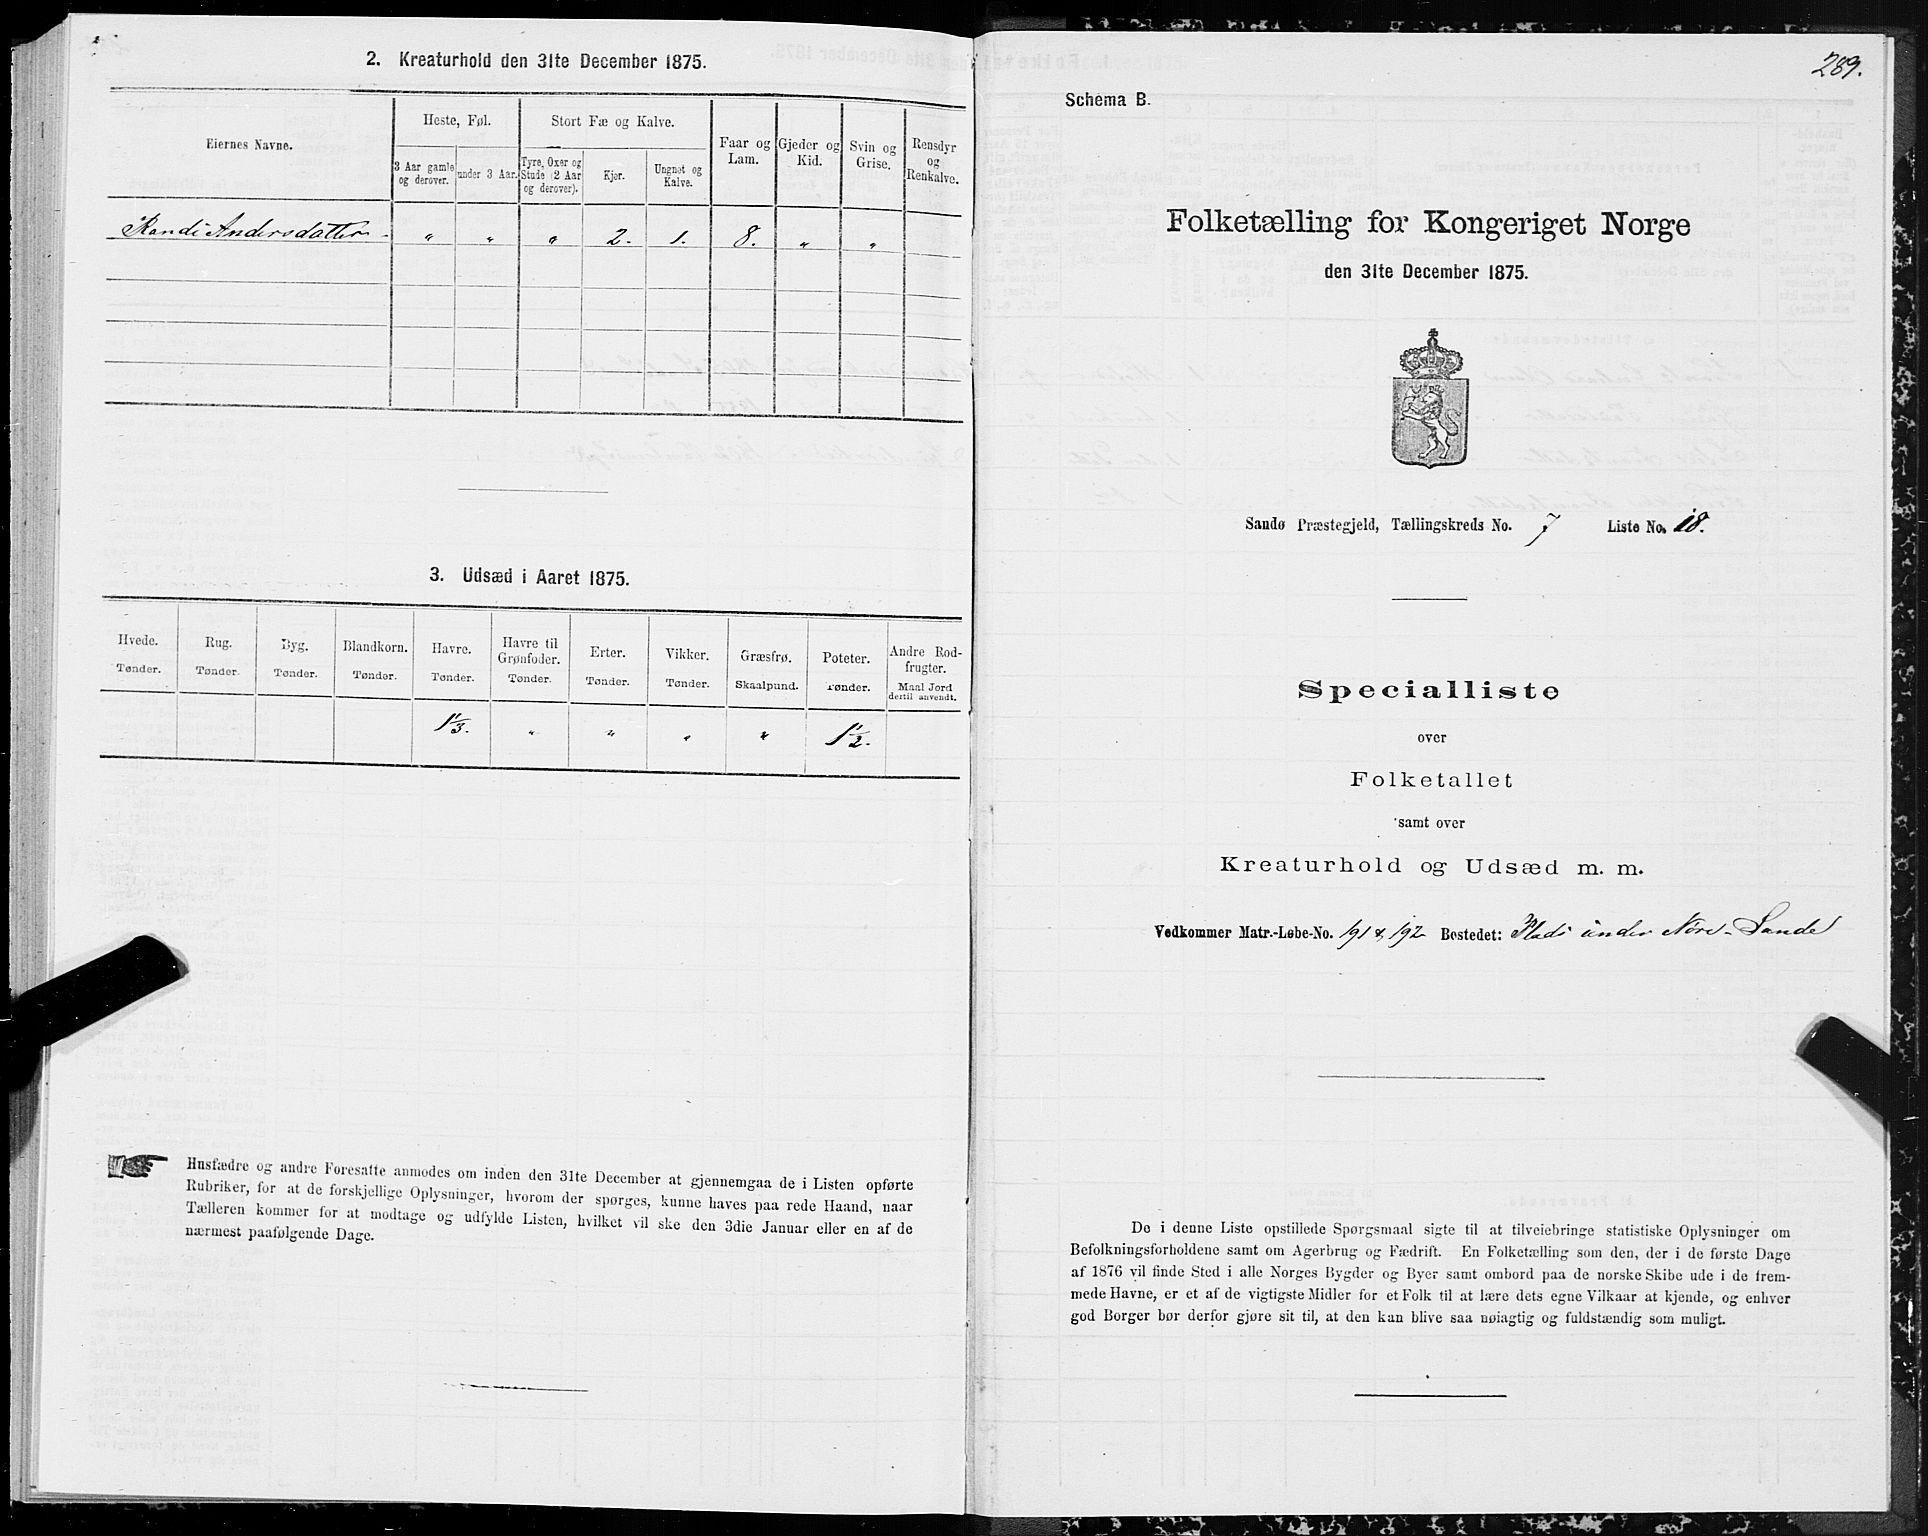 2. Kreaturhold den 31te December 1875.
Eiernes Navne.
Heste, Føl.
Stort Fæ og Kalve.
Faar og Lam.
Gjeder og Kid.
Svin og Grise.
Rensdyr og Renkalve.
3 Aar gamle og derover.
under 3 Aar.
Tyre, Oxer og Stude (2 Aar og derover).
Kjør.
Ungnøt og Kalve.
Randi Andersdatter " " " 2. 1. 8. " "
3. Udsæd i Aaret 1875.
Hvede. Rug. Byg. Blandkorn. Havre. Havre til Grønfoder. Erter. Vikker. Græsfrø. Poteter. Andre Rodfrugter.
Tønder. Tønder. Tønder. Tønder. Tønder. Tønder. Tønder. Tønder. Skaalpund. Tønder. Maal Jord dertil anvendt.
1 1/3. " " " " 1 1/2.
Husfædre og andre Foresatte anmodes om inden den 31te December at gjennemgaa de i Listen opførte
Rubriker, for at de forskjellige Oplysninger, hvorom der spørges, kunne haves paa rede Haand, naar
Tælleren kommer for at modtage og udfylde Listen, hvilket vil ske den 3die Januar eller en af de
nærmest paafølgende Dage.
289.
Schema B.
Folketælling for Kongeriget Norge
den 31te December 1875.
Sandø Præstegjeld, Tællingskreds No. 7 Liste No. 18.
Specialliste
over
Folketallet
samt over
Kreaturhold og Udsæd m. m.
Vedkommer Matr.-Løbe-No. 191 & 192 Bostedet: Plads under Nóre-Sande
De i denne Liste opstillede Spørgsmaal sigte til at tilveiebringe statistiske Oplysninger om
Befolkningsforholdene samt om Agerbrug og Fædrift. En Folketælling som den, der i de første Dage
af 1876 vil finde Sted i alle Norges Bygder og Byer samt ombord paa de norske Skibe ude i de frem-
mede Havne, er et af de vigtigste Midler for et Folk til at lære dets egne Vilkaar at kjende, og enhver
god Borger bør derfor gjøre sit til, at den kan blive saa nøiagtig og fuldstændig som muligt.